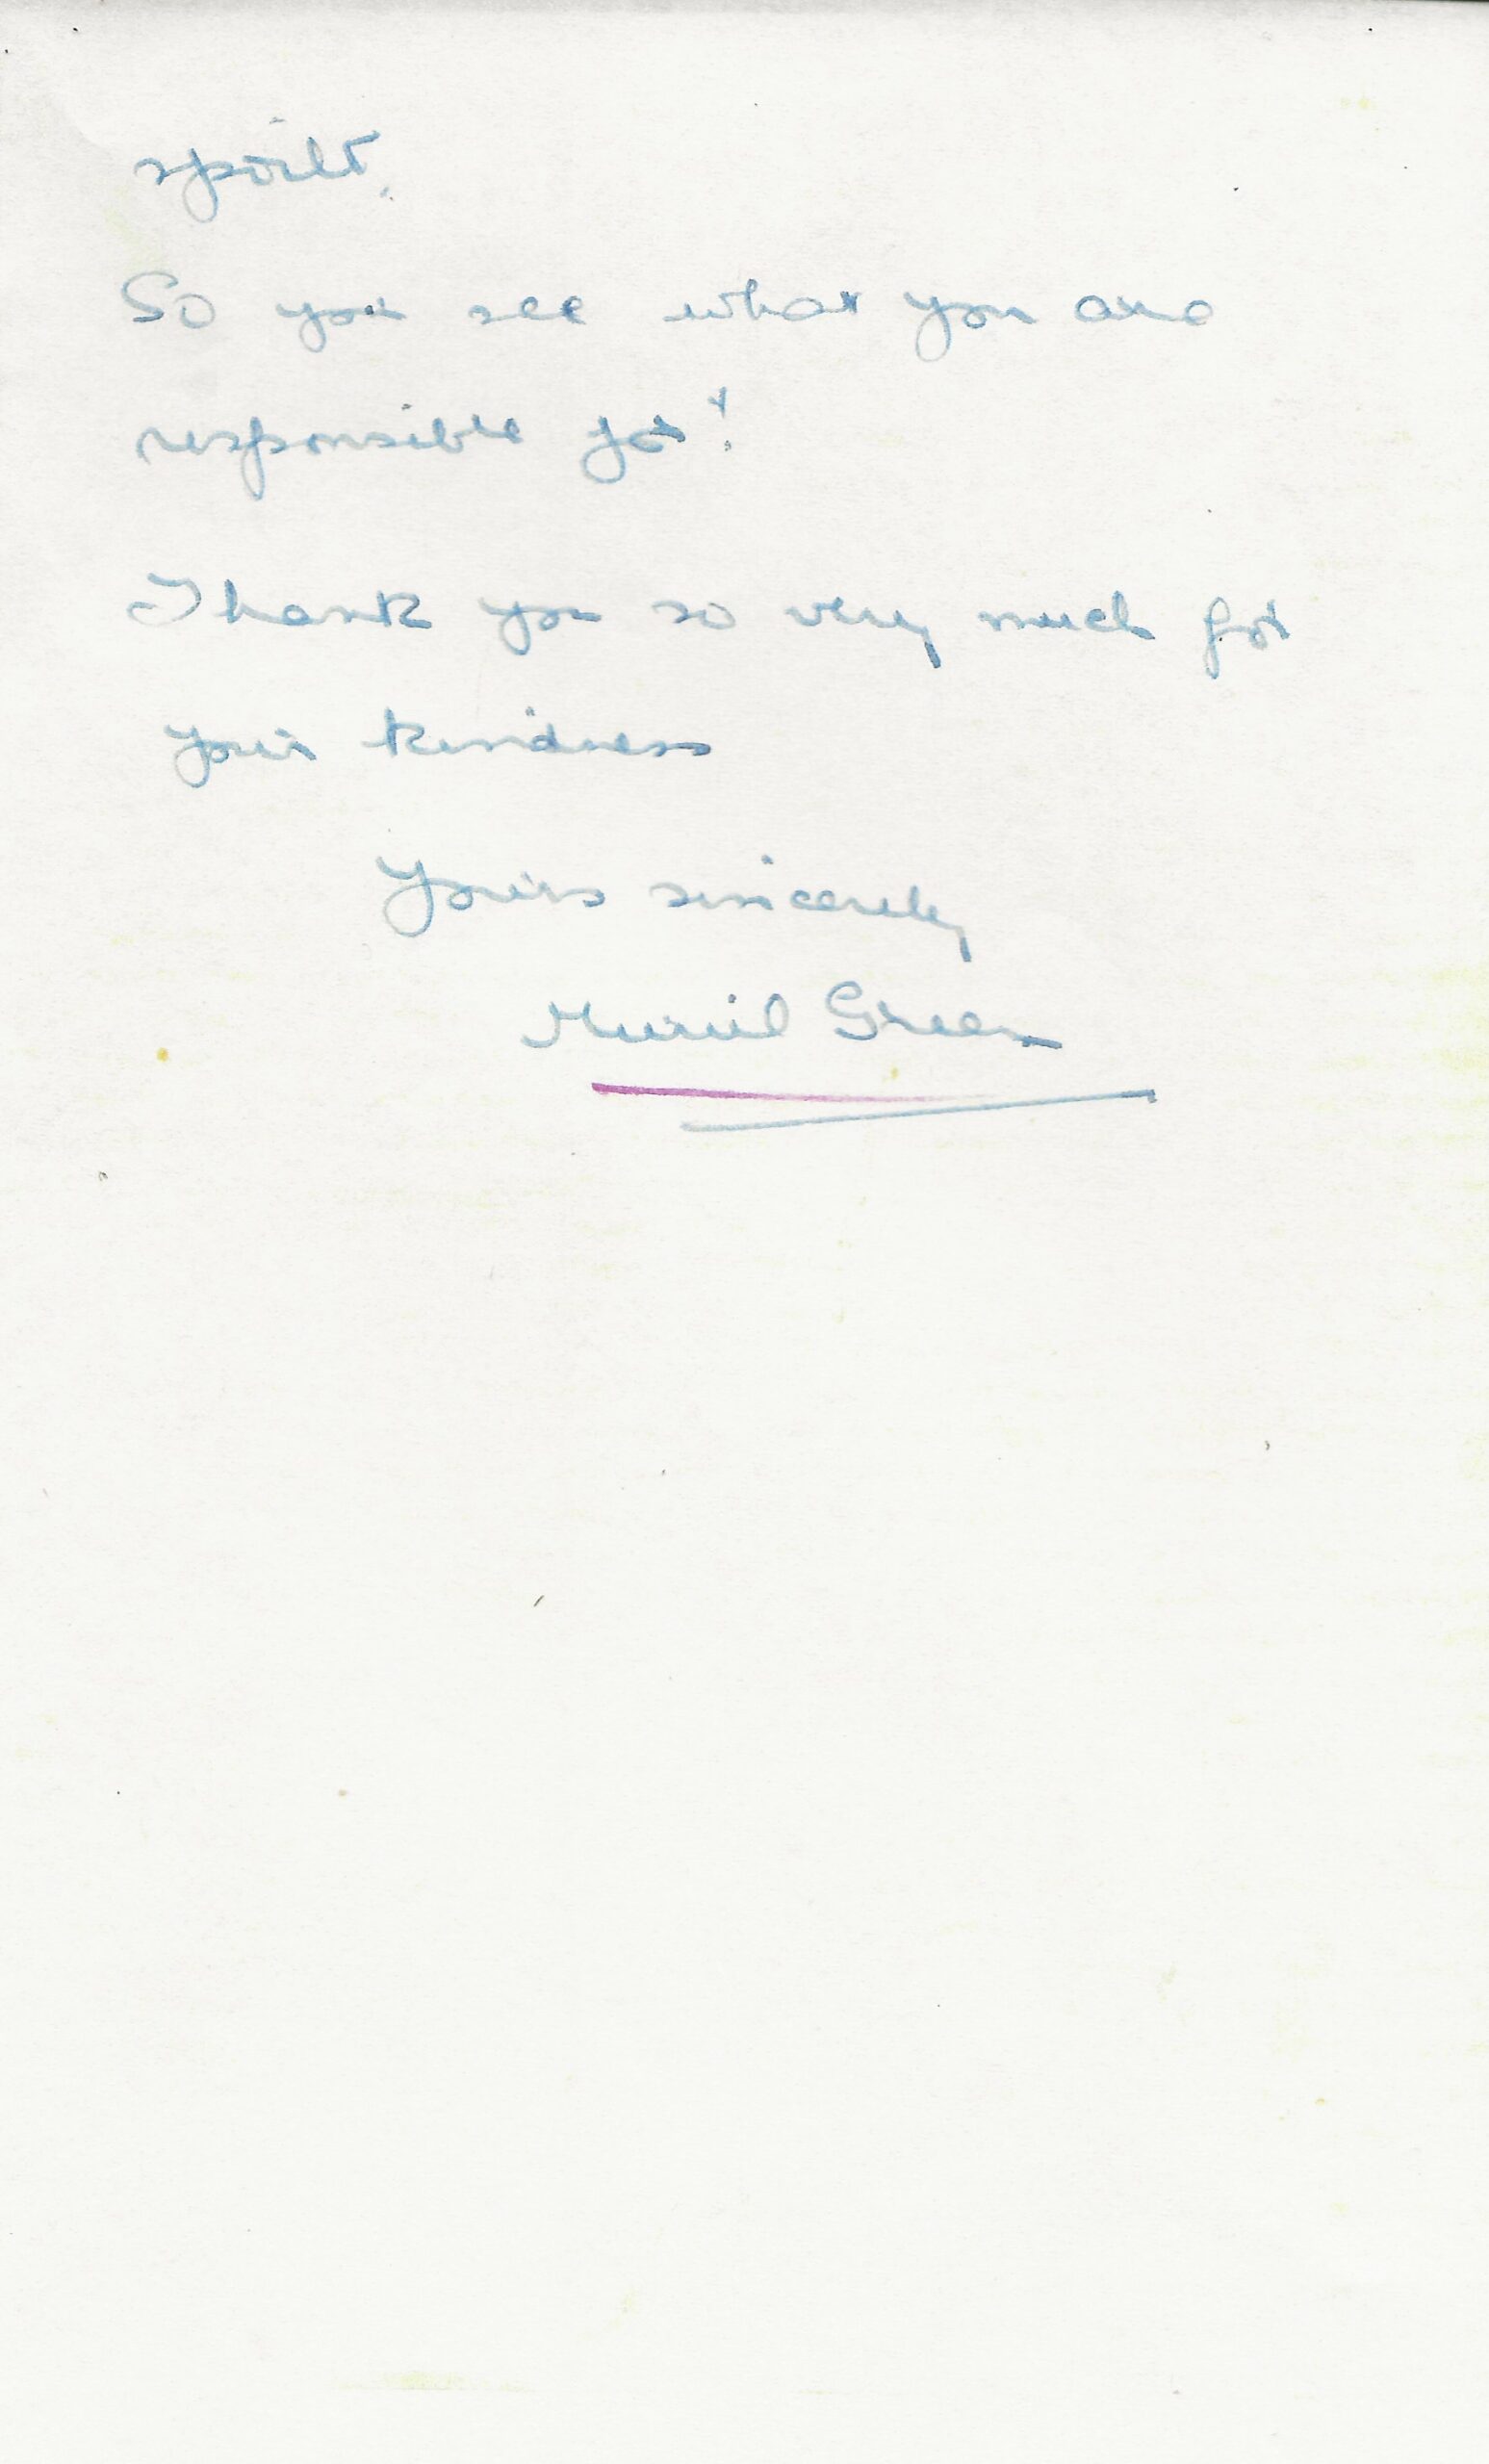 spoilt.
So you see what you are
responsible for!
Thank you so very much for
your kindness
Yours sincerely
Muriel Green